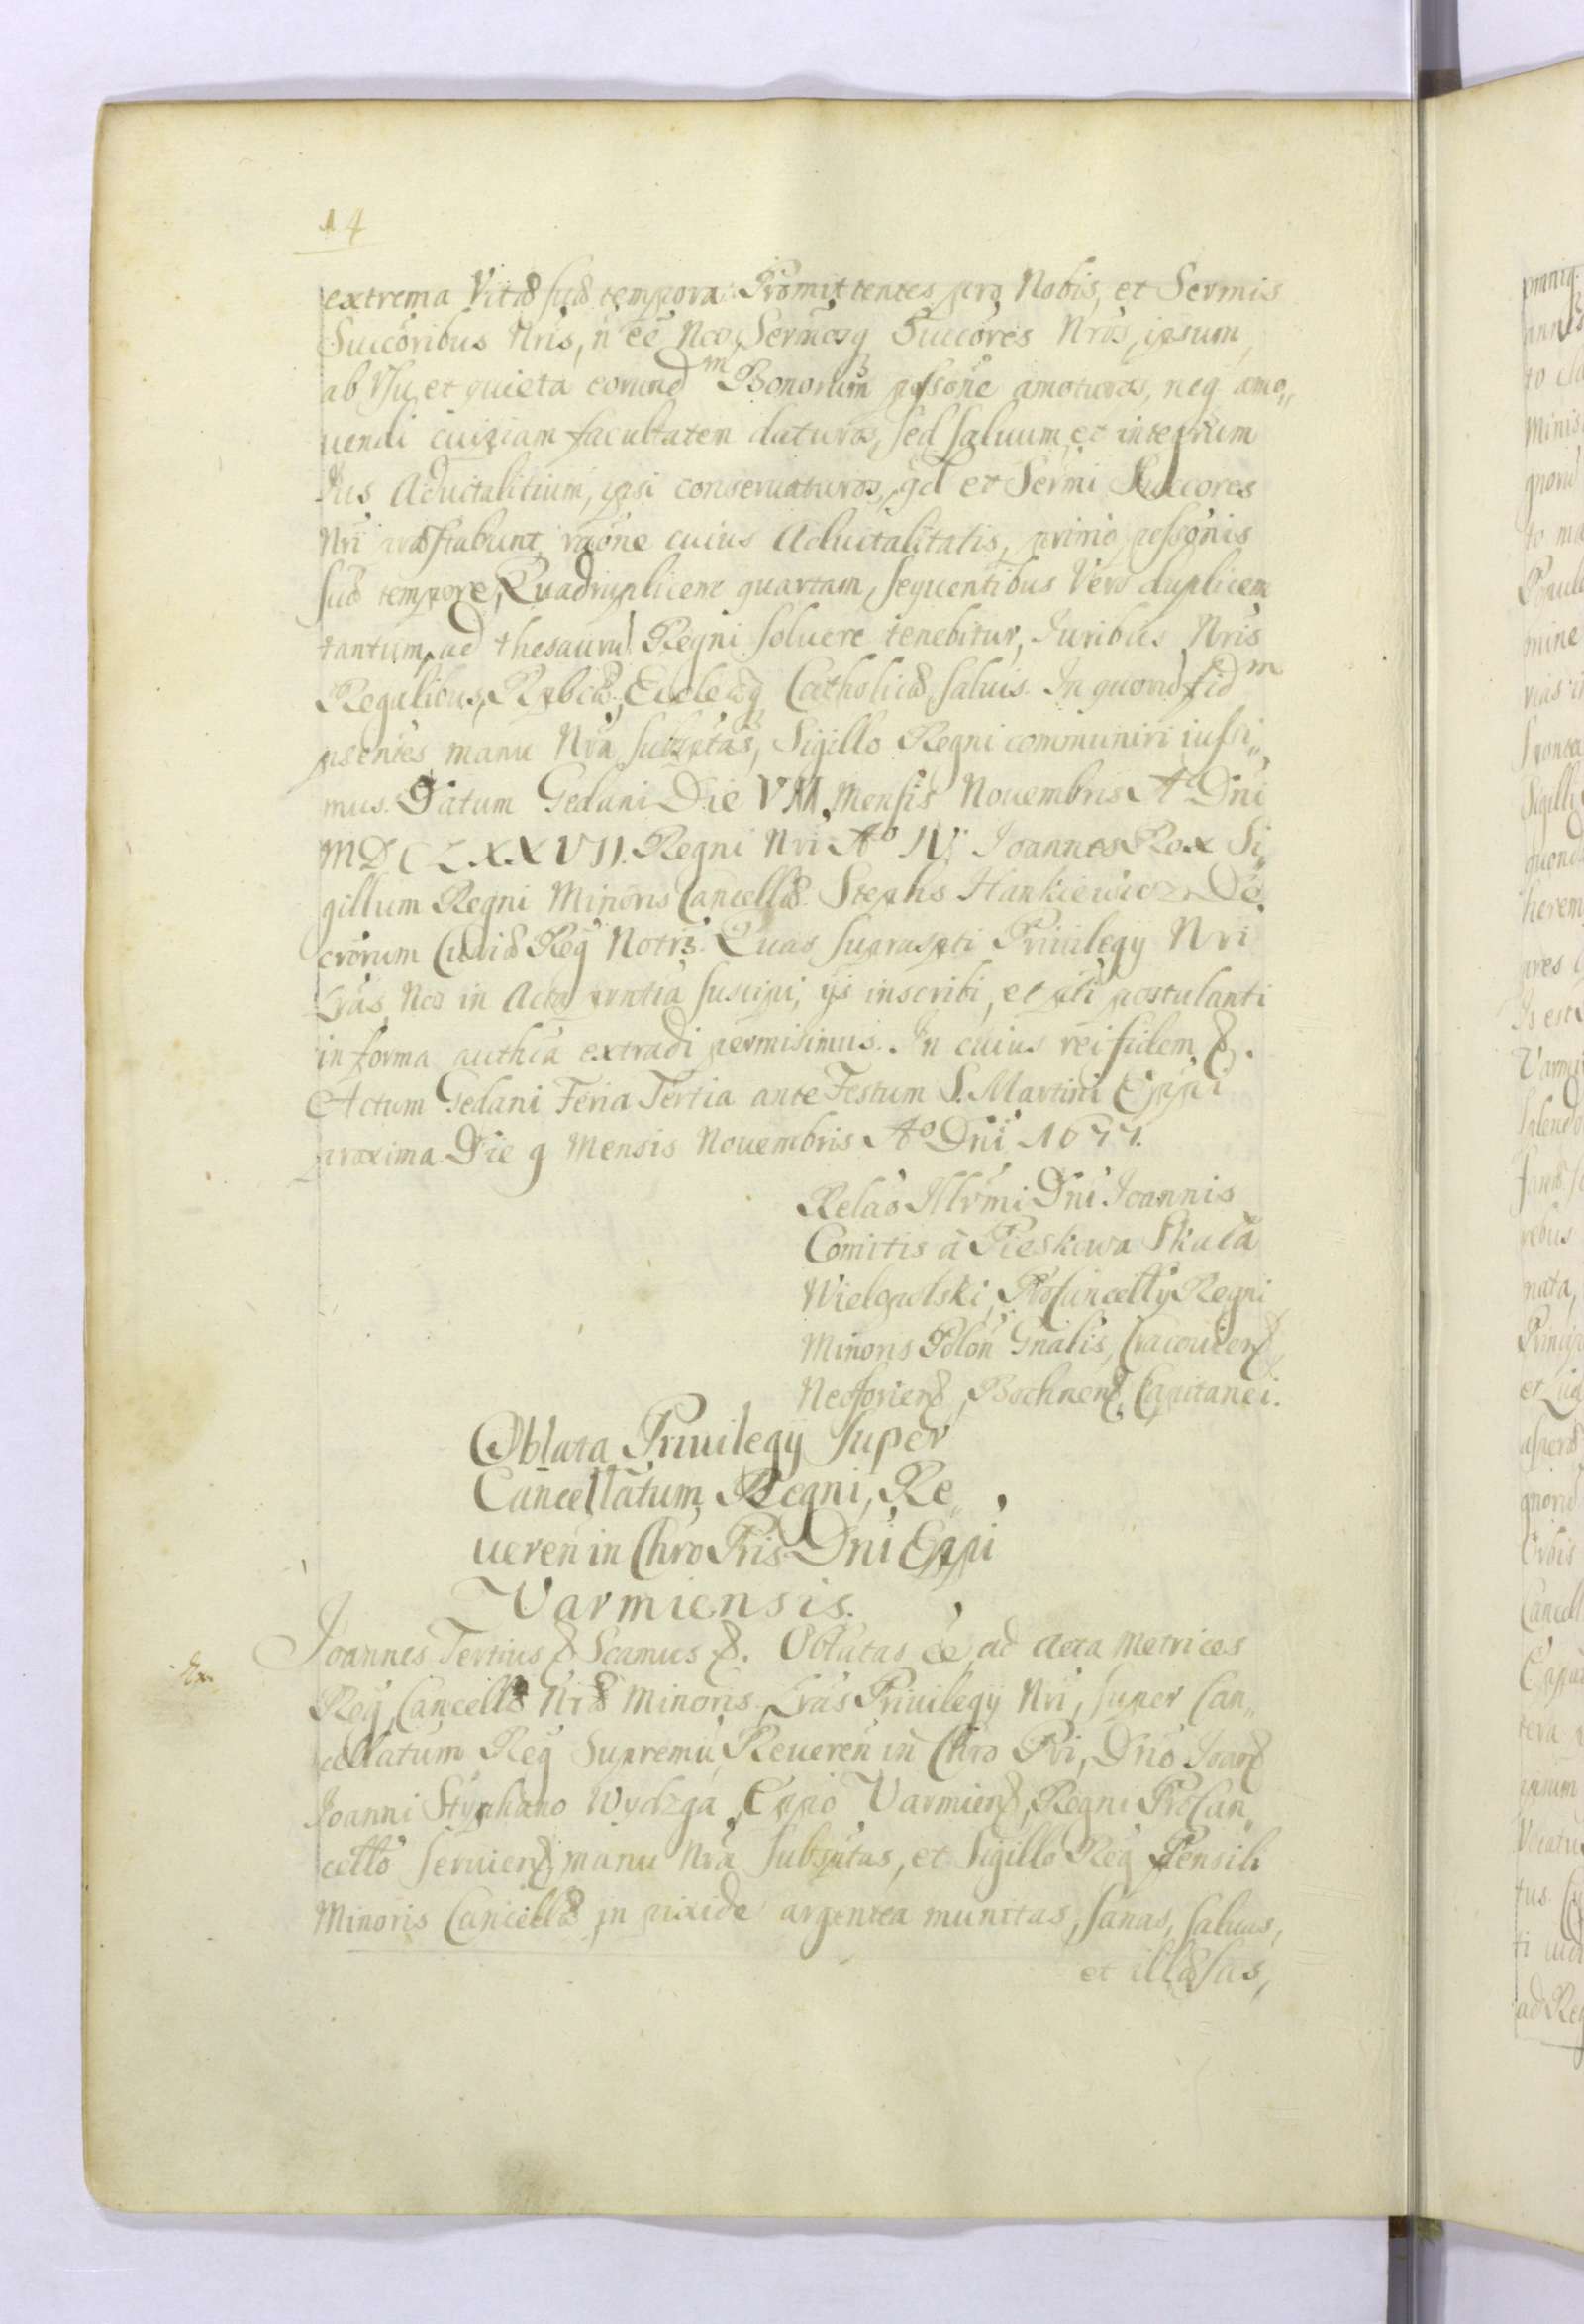 14
extrema Vitæ suæ tempora. Promittentes pro Nobis, et Sermis
Succoribus Nris, n̄ eē Nos, Sermosq Succores Nros, ipsum,
ab Usu, et quieta eorund^m Bonorum possone amoturos, neq amo„
uendi cuipiam facultatem daturos, sed saluum, et integrum
Jus Aduitalitium, ipsi conseruaturos, qd et Sermi Succores
Nri præstabunt, raone cuius Aduitalitatis, primo possonis
suæ tempore, Quadruplicem quartam, sequentibus Vero duplicem
tantum, ad thesauru Regni soluere tenebitur, Juribus Nris
Regalibus, Rpbcæ, Ecclæq Catholicæ saluis. In quoru fid^m
psentes manu Nra subsptas, Sigillo Regni communiri iussi„
mus. Datum Gedani Die VII Mensis Nouembris Aº Dni
MDCLXXVII. Regni Nri Aº IV. Joannes Rex Si„
gillum Regni Minoris Cancellæ. Stephs Hankiewicz De„
crorum Curiæ Reg Notrs. Quas suprasпti Priuilegij Nri
Lras, Nos in Acta prntia suscipi, ijs inscribi, et pti postulanti
in forma authca extradi permisimus. In cuius rei fidem &.
Actum Gedani Feria Tertia ante Festum S. Martini Eppi
proxima. Die 9 Mensis Nouembris Aº Dni 1677.
Relao Illrmi Dni Joannis
Comitis à Pieskowa Skała
Wielopolski, ProCancellij Regni
Minoris Polon Gnalis, Cracouien&
Neoforien&, Bochnen&, Capitanei.
Oblata Priuilegij super
Cancellatum Regni, Re„
ueren in Chro Pris Dni Eppi
Varmiensis.
Joannes Tertius & Scamus &. Oblatas eē, ad acta Metrices
Reg Cancellæ Nræ Minoris Lras Priuilegij Nri, super Can„
cellatum Reg Supremu, Reueren in Chro Pri, Dno Joan&
Joanni Stephano Wydzga, Eppo Varmien&, Regni ProCan„
cello seruien&, manu Nra subsptas, et Sigillo Reg Pensili
Minoris Cancellæ in pixide argentea munitas, sanas, saluas,
et illæsas,